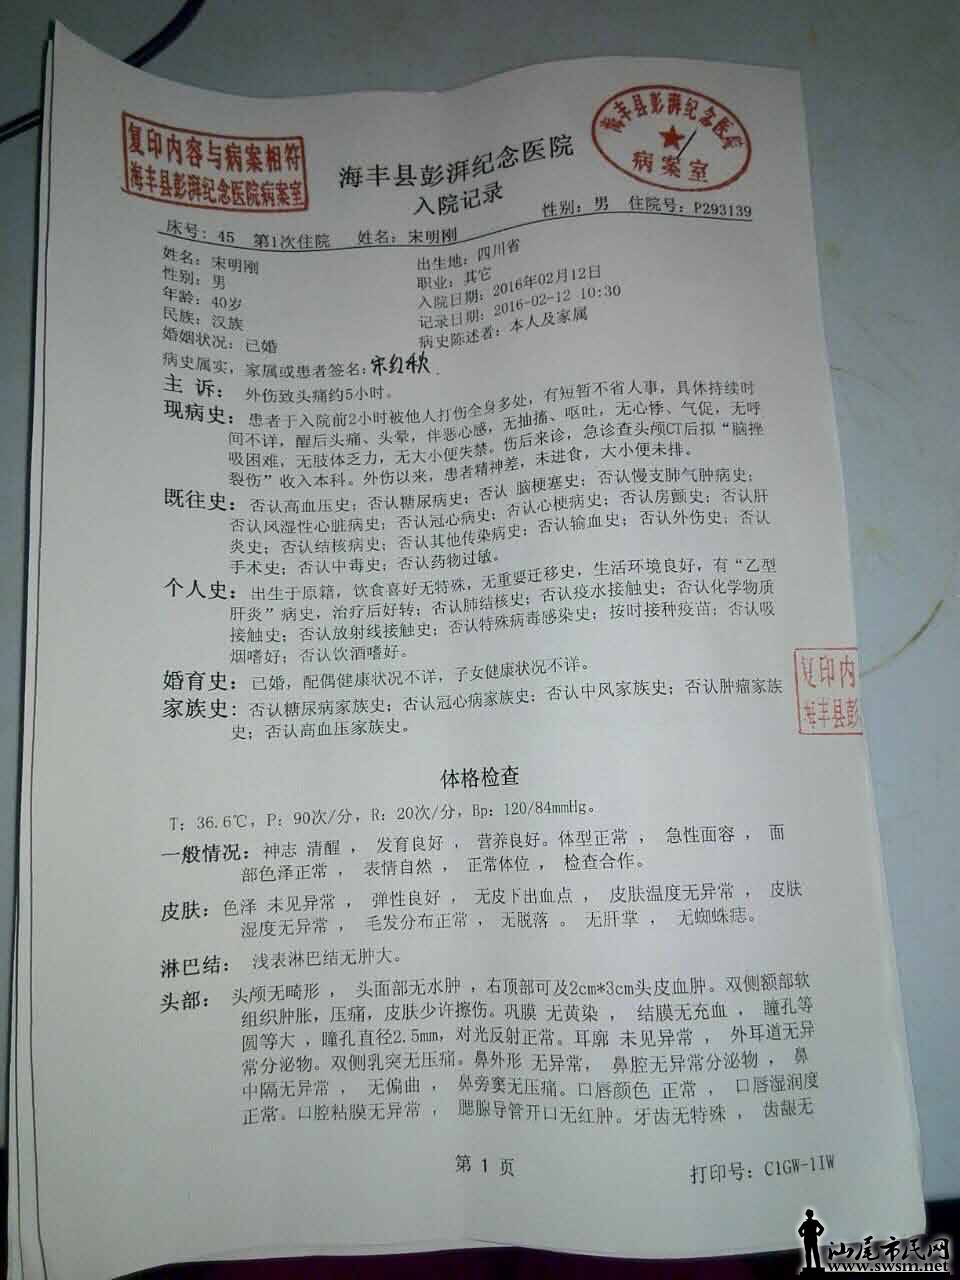 复印内容与病案相符
海丰县彭湃纪念医院病案室
海丰县彭湃纪念医院
病案室
海丰县彭湃纪念医院
入院记录
床号: 45 第1次住院 姓名: 宋明刚 性别: 男 住院号: P293139
姓名: 宋明刚 出生地: 四川省
性别: 男 职业: 其它
年龄: 40岁 入院日期: 2016年02月12日
民族: 汉族 记录日期: 2016-02-12 10:30
婚姻状况: 已婚 病史陈述者: 本人及家属
病史属实, 家属或患者签名: 宋红秋
主 诉: 外伤致头痛约5小时。
现病史: 患者于入院前2小时被他人打伤全身多处, 有短暂不省人事, 具体持续时
间不详, 醒后头痛、头晕, 伴恶心感, 无抽搐、呕吐, 无心悸、气促, 无呼
吸困难, 无肢体乏力, 无大小便失禁。伤后来诊, 急诊查头颅CT后拟“脑挫
裂伤”收入本科。外伤以来, 患者精神差, 未进食, 大小便未排。
既往史: 否认高血压史; 否认糖尿病史; 否认 脑梗塞史; 否认慢支肺气肿病史;
否认风湿性心脏病史; 否认冠心病史; 否认心梗病史; 否认房颤史; 否认肝
炎史; 否认结核病史; 否认其他传染病史; 否认输血史; 否认外伤史; 否认
手术史; 否认中毒史; 否认药物过敏。
个人史: 出生于原籍, 饮食喜好无特殊, 无重要迁移史, 生活环境良好, 有“乙型
肝炎”病史, 治疗后好转; 否认肺结核史; 否认疫水接触史; 否认化学物质
接触史; 否认放射线接触史; 否认特殊病毒感染史; 按时接种疫苗; 否认吸
烟嗜好; 否认饮酒嗜好。
婚育史: 已婚, 配偶健康状况不详, 子女健康状况不详。
家族史: 否认糖尿病家族史; 否认冠心病家族史; 否认中风家族史; 否认肿瘤家族
史; 否认高血压家族史。
复印内
海丰县彭
体格检查
T: 36.6℃, P: 90次/分, R: 20次/分, Bp: 120/84mmHg。
一般情况: 神志 清醒 , 发育良好 , 营养良好。体型正常 , 急性面容 , 面
部色泽正常 , 表情自然 , 正常体位 , 检查合作。
皮肤: 色泽 未见异常 , 弹性良好 , 无皮下出血点 , 皮肤温度无异常 , 皮肤
湿度无异常 , 毛发分布正常 , 无脱落 。 无肝掌 , 无蜘蛛痣。
淋巴结: 浅表淋巴结无肿大。
头部: 头颅无畸形 , 头面部无水肿 , 右顶部可及2cm*3cm头皮血肿。双侧额部软
组织肿胀, 压痛, 皮肤少许擦伤。巩膜 无黄染 , 结膜无充血 , 瞳孔等
圆等大 , 瞳孔直径2.5mm, 对光反射正常。耳廓 未见异常 , 外耳道无异
常分泌物。双侧乳突无压痛。鼻外形 无异常, 鼻腔无异常分泌物 , 鼻
中隔无异常 , 无偏曲 , 鼻旁窦无压痛。口唇颜色 正常 , 口唇湿润度
正常。口腔粘膜无异常 , 腮腺导管开口无红肿。牙齿无特殊 , 齿龈无
第 1 页
打印号: C1GW-1IW
汕尾市民网
www.swsm.net